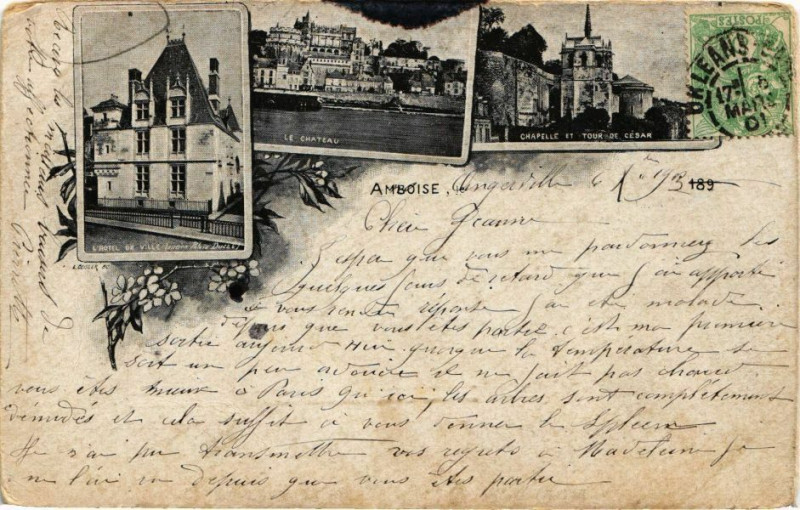 POSTES
ORLEANS
17
MARS
01
LE CHATEAU
CHAPELLE ET TOUR DE CÉSAR
L'HOTEL DE VILLE
AMBOISE, le Angerville 189
Chère Jeanne
J'espère que vous me pardonnerez les
quelques jours de retard que j'ai apporté
à vous rendre réponse j'ai été malade
depuis que vous êtes partie c'est ma première
sortie aujourd'hui quoique la température se
soit un peu adoucie il ne fait pas chaud.
vous êtes mieux à Paris qu'ici, les arbres sont complètement
dénudés et cela suffit à vous donner le Spleen
Je n'ai pu transmettre vos regrets à Madeleine je
ne l'ai vu depuis que vous êtes partie
les meilleurs baisers de
votre affectionnée